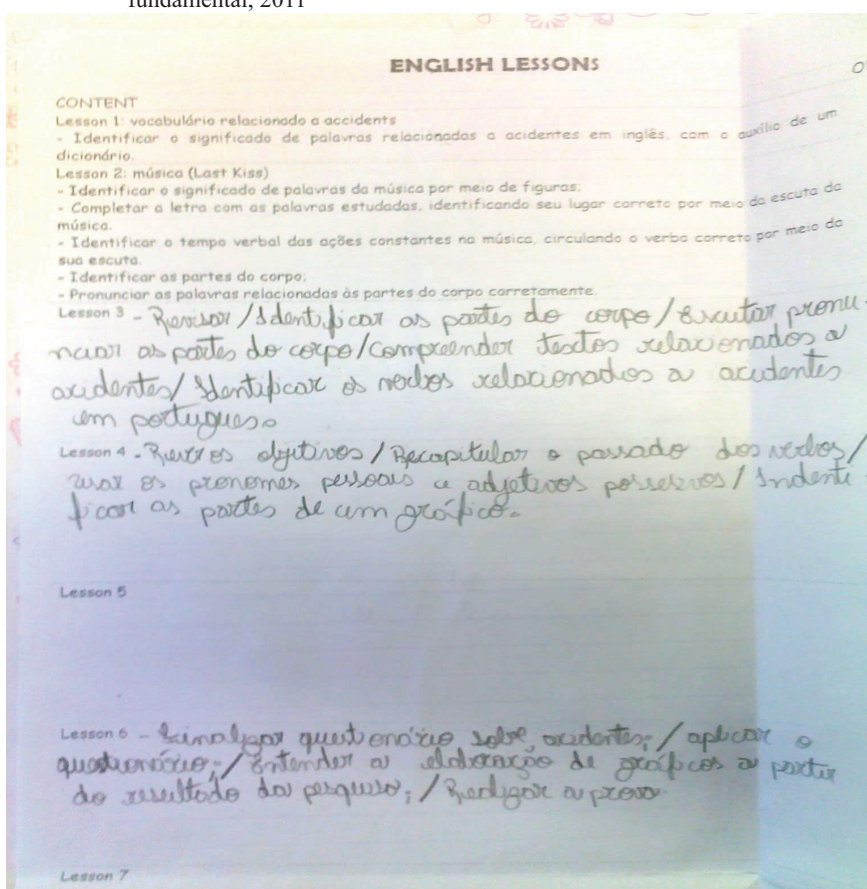 fundamental, 2011
ENGLISH LESSONS
CONTENT
Lesson 1: vocabulário relacionado a accidents
- Identificar o significado de palavras relacionadas a acidentes em inglês, com o auxílio de um
dicionário.
Lesson 2: música (Last Kiss)
- Identificar o significado de palavras da música por meio de figuras;
- Completar a letra com as palavras estudadas, identificando seu lugar correto por meio da escuta da
música.
- Identificar o tempo verbal das ações constantes na música, circulando o verbo correto por meio da
sua escuta.
- Identificar as partes do corpo;
- Pronunciar as palavras relacionadas às partes do corpo corretamente.
Lesson 3 - Revisar / Identificar as partes do corpo / Escutar pronu-
nciar as partes do corpo / compreender textos relacionados a
acidentes / Identificar os verbos relacionados a acidentes
em portugues.
Lesson 4 - objetivos / Recapitular o passado dos verbos /
usar os pronomes pessoais e adjetivos possesivos / Indenti-
ficar as partes de um gráfico.
Lesson 5
Lesson 6 - Finalizar questionário sobre acidentes; / aplicar o
questionário; / Entender a elaboração de gráficos a partir
do resultado da pesquisa; / Redigir a prova.
Lesson 7